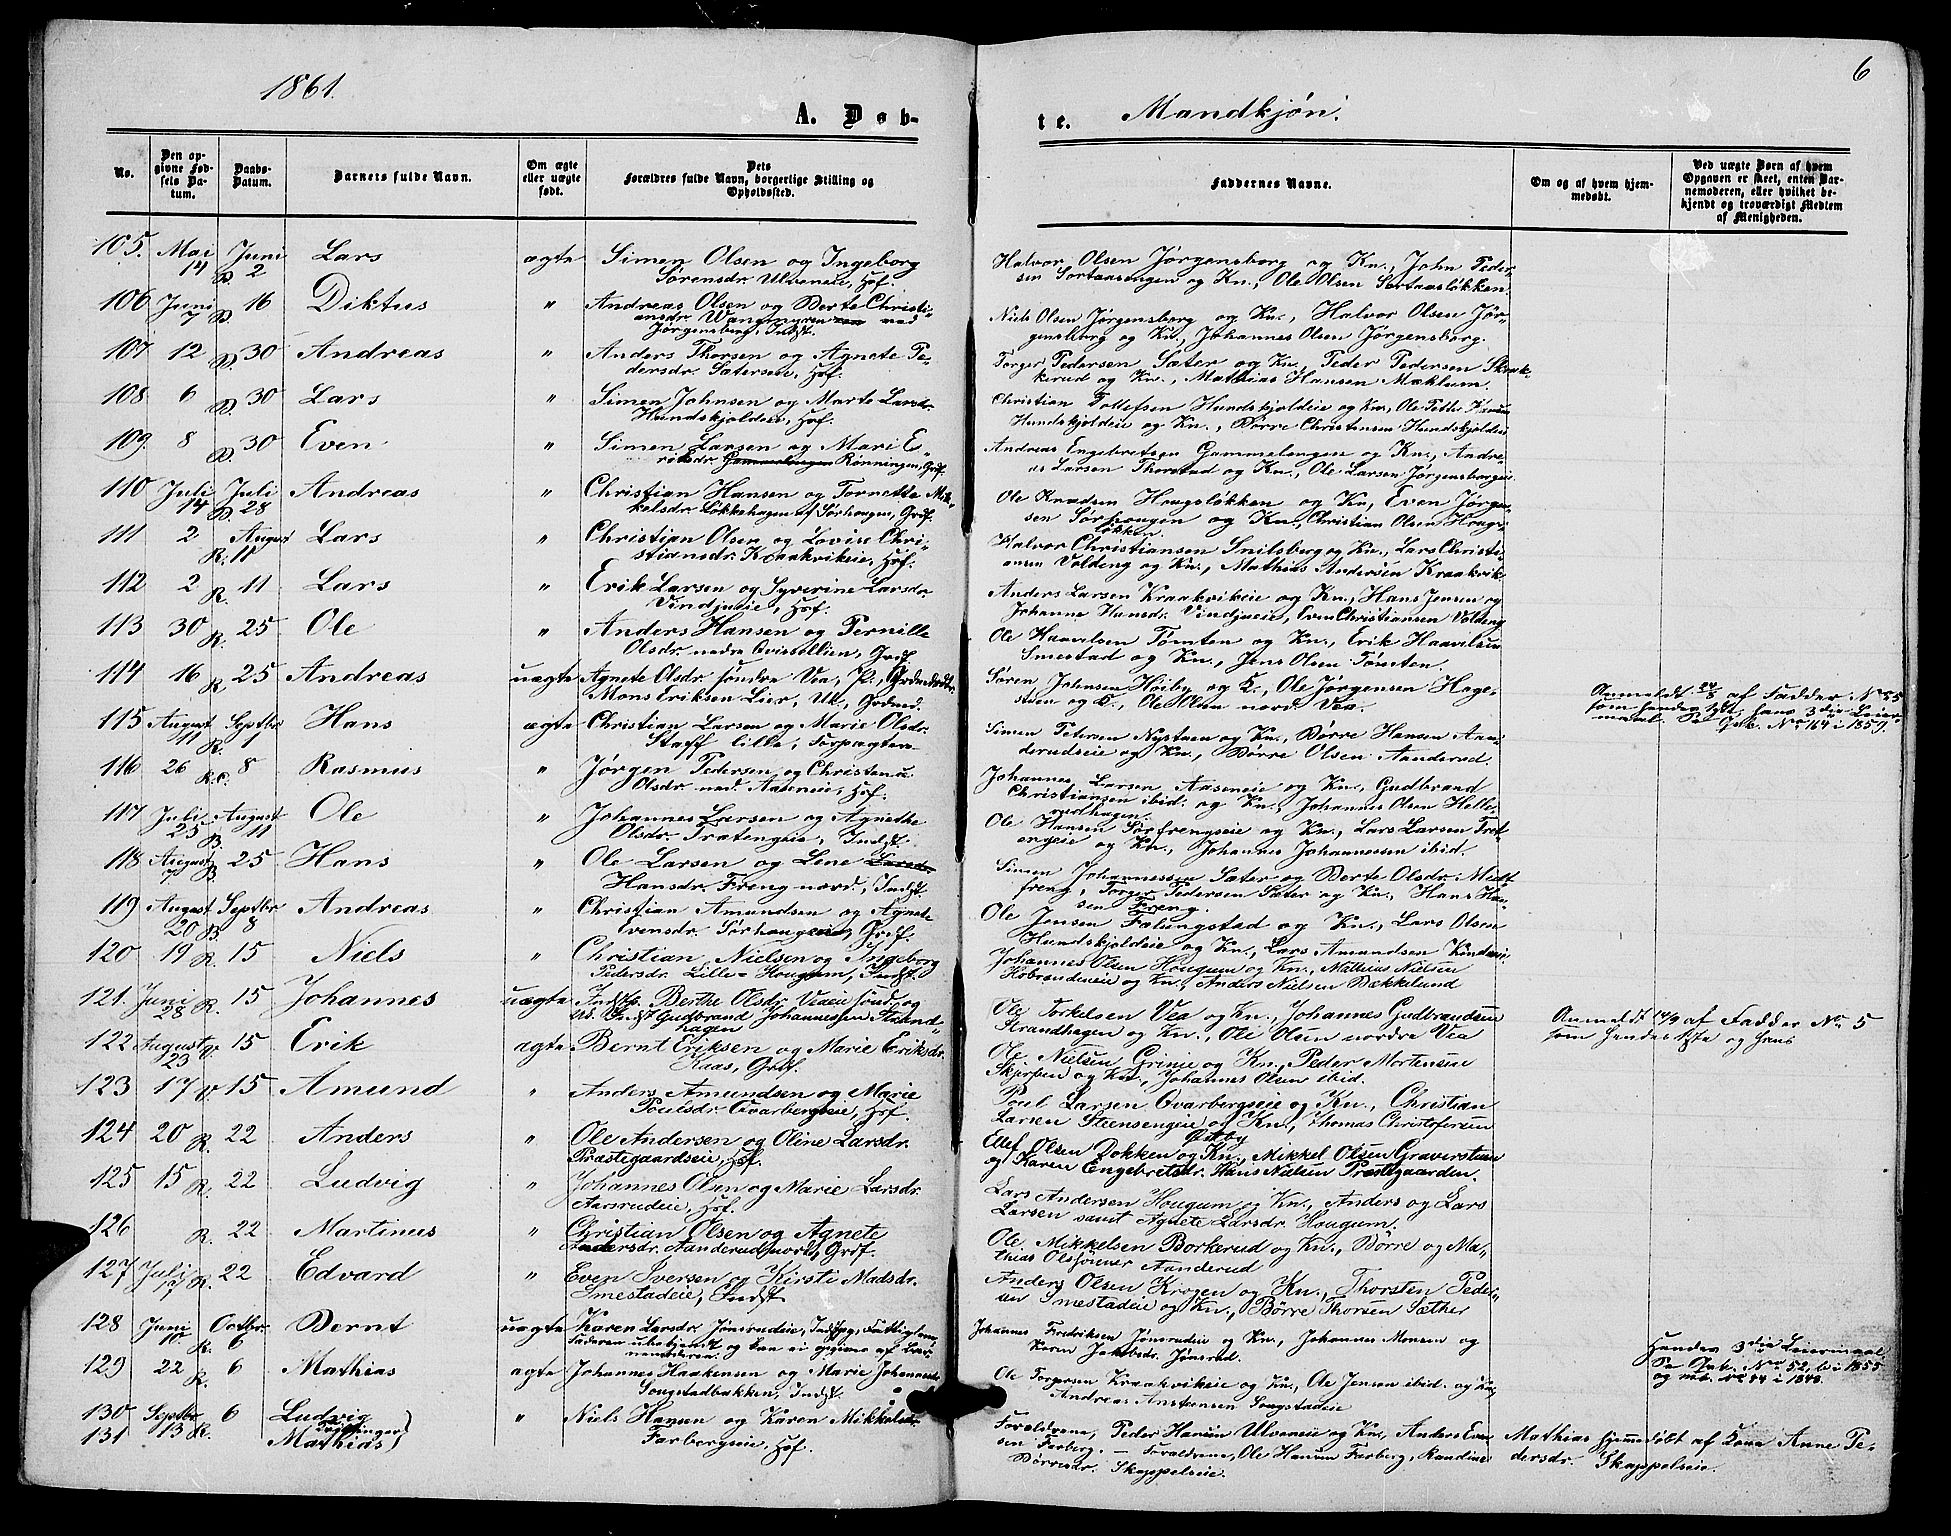 1861.
6
A. Døb-
te. Mandkjøn.
No.
Den opgivne Fødsels Datum.
Daabs-Datum.
Barnets fulde Navn.
Om ægte eller uægte født.
Dets Forældres fulde Navn, borgerlige Stilling og Opholdssted.
Faddernes Navne.
Om og af hvem hjemmedøbt.
Ved uægte Børn af hvem Opgaven er skeet, enten Barnemoderen, eller hvilket bekjendt og troværdigt Medlem af Menigheden.
105. Mai 14 Juni 2 Lars ægte Simen Olsen og Ingeborg
Sørensdr. Ulveneie, Hof.
Halvor Olsen Jørgensborg og Kn., John Peder-
sen Sortaasengen og Kn., Ole Olsen Sortaasløkken.
106 Juni 7 B. 16 Diktus " Andreas Olsen og Berte Christi-
ansdr. Wangmyren ned
Jørgensborg, Indst.
Niels Olsen Jørgensborg og Kn., Halvor Olsen Jør-
gensborg og Kn., Johannes Olsen Jørgensborg.
107 12 30 Andreas " Anders Thorsen og Agnete Pe-
dersdr. Sætereie, Hof.
Torger Pedersen Sæter og Kn., Peder Pedersen Skrak-
kerud og Kn., Mathias Hansen Mæhlum.
108 6 30 Lars " Simen Johnsen og Marte Larsdr.
Hundskjoldeie, Hof.
Christian Tollefsen Hundskjoldeie og Kn., Ole
Hundskjoldeie og Kn., Børre Christensen Hundskjoldeie
109. 8 30 Even " Simen Larsen og Mari E-
riksdr. Gammelengen Rønningen, Grdf.
Andreas Engebretsen Gammelengen og Kn., Andre-
as Larsen Thorsrud og Kn., Ole Larsen Jørgensborgeie.
110 Juli 14 Juli 28 Andreas " Christian Hansen og Tornette Mik-
kelsdr. Løkkehagen af Sørhougen, Grdf.
Ole Knudsen Hougsløkken og Kn., Even Jørgen-
sen Sørhougen og Kn., Christian Olsen Hougs-
løkken.
111 2 August R. 11 Lars " Christian Olsen og Lovise Chri-
stiansdr. Kraakvikeie, Hof.
Halvor Christiansen Snilsberg og Kn., Lars Christi-
ansen Volding og Kn., Mathias Andersen Kraakvik.
112 2 R. 11 Lars " Erik Larsen og Syverine Larsdr.
Vindjueie, Hof.
Anders Larsen Kraakvikeie og Kn., Hans Jensen og
Johanne Hansdr. Vindjueie, Even Christiansen Volding
113 30 R. 25 Ole " Anders Hansen og Pernille
Olsdr. nedre Qvisellien, Grdf.
Ole Haavelsen Tømten og Kn., Erik Haavelsen
Smestad og Kn., Jens Olsen Tømten.
114 16 R. 25 Andreas uægte Agnete Olsdr. søndre Vea, P., Grdmdatter
Mons Eriksen Lier, Uk, Grdmd.
Søren Johnsen Høiby og K., Ole Jørgensen Hage-
steen og K., Ole Olsen nord. Vea.
Anmeldt 24/8 af Fadder No 5
som hendes 1ste, hans 3die Leier-
maal. Se Gjub. No 164 i 1859.
115 August 11 Septbr. R. 1 Hans ægte Christian Larsen og Marie Olsdr.
Staff lille, Forpagter.
Simen Petersen Nystuen og Kn., Børre Hansen Aan-
derudeie og Kn., Børre Olsen Aanderud.
116 26 8 Rasmus " Jørgen Pedersen og Christense
Olsdr. ned. Aaseneie, Hof.
Johannes Larsen Aaseneie og Kn., Gudbrand
Christiansen ibid. og Kn., Johannes Olsen Helle-
rudhagen.
117 Juli 25 August B. 11 Ole " Johannes Larsen og Agnethe
Olsdr. Trætengeie, Indst.
Ole Hansen Sørfrengseie og Kn., Lars Larsen Træt-
engeie og Kn., Johannes Johannessen ibid.
118 August 7 B. 25 Hans " Ole Larsen og Lene Larsdr.
Hansdr. Freng nord., Indst.
Simen Johannessen Sæter og Berte Olsdr. Midt-
freng, Torger Pedersen Sæter og Kn., Hans Han-
sen Freng.
119 August 20 Septbr. B. 8 Andreas " Christian Amundsen og Agnete
Evensdr. Sørhougeneie, Grdf.
Ole Jensen Falungstad og Kn., Lars Olsen
Hundskjoldeie og Kn., Lars Amundsen Kinderi
120 19 R. 15 Niels " Christian Nielsen og Ingeborg
Pedersdr. Lille-Hougum, Indst.
Johannes Olsen Hougum og Kn., Mathias Nielsen
Hobrændeneie og Kn., Anders Nielsen Bekkelund
121. Juni 28 R. 15 Johannes uægte Indstp. Berthe Olsdr. Veaeie sønd. og
Uk. Indst Gudbrand Johannessen Strand-
hagen
Ole Torkelsen Vea og Kn., Johannes Gudbrandsen
Strandhagen og Kn., Ole Olsen nordre Vea
Anmeldt 14/9 af Fadder No 5
som hendes 1ste og hans
122 August 23 15 Erik ægte Bernt Eriksen og Marie Eriksdr.
Kaas, Grdf.
Ole Nielsen Grinie og Kn., Peder Mortensen
Skjerpen og Kn., Johannes Olsen ibid.
123 17 15 Amund " Anders Amundsen og Marie
Poulsdr. Qvarbergseie, Hof.
Poul Larsen Qvarbergseie og Kn., Christian
Larsen Steensengeie og Kn., Thomas Christofersen
124 20 R. 22 Anders " Ole Andersen og Oline Larsdr.
Præstegaardseie, Hof.
Østby
Ellef Olsen Dokken og Kn., Mikkel Olsen Graverstuen
og Karen Engebretsdr. Hans Nielsen Præstgaarden.
125 15 R. 22 Ludvig " Johannes Olsen og Marie Larsdr.
Aarsrudeie, Hof.
Lars Andersen Hougum og Kn., Anders og Lars
Larsen samt Agnete Larsdr. Hougum.
126 R. 22 Martinus " Christian Olsen og Agnete
Andersdr. Aanderud nord, Grdf.
Ole Mikkelsen Borkerud og Kn., Børre og Ma-
thias Olssønner Aanderud
127 Juli 17 R. 22 Edvard " Even Iversen og Kirsti Madsdr.
Smestadeie, Indst
Anders Olsen Krogen og Kn., Thorsten Peder-
sen Smestadeie og Kn., Børre Thorsen Sæther
128 Juni 10 Octbr. R. 6 Bernt uægte Karen Larsdr. Jønsrudeie, Indstpg., Fattiglem,
Faderen ubekjendt og kan ei opgives af Bar-
nemoderen.
Johannes Fredriksen Jønsrudeie og Kn., Johannes Monsen og
Karen Jakobsdr. Jønsrud.
Hendes 3die Leiermaal
Se Gjub. No 52, b i 1855
og mb. No 44 i 1848.
129 22 R. 6 Mathias ægte Johannes Haakensen og Marie Johannesdr.
Songstadbakken, Indst.
Ole Torgersen Kraakvikeie og Kn., Ole Jensen ibid. og Kn.,
Andreas Anstensen Songstadeie
130 Septbr. 13 R. 6 Ludvig " Niels Hansen og Karen Mikkelsdr.
Tvillinger
131 Mathias
Farbergseie, Hof.
Forældrene, Peder Hansen Ulveneie og Kn., Anders Even-
sen Farberg. — Forældrene, Ole Hansen Farberg, Randine
Børresdr. Skappelseie.
Mathias hjemmedøbt af Kone Anne Pe-
dersdr. Skappelseie.